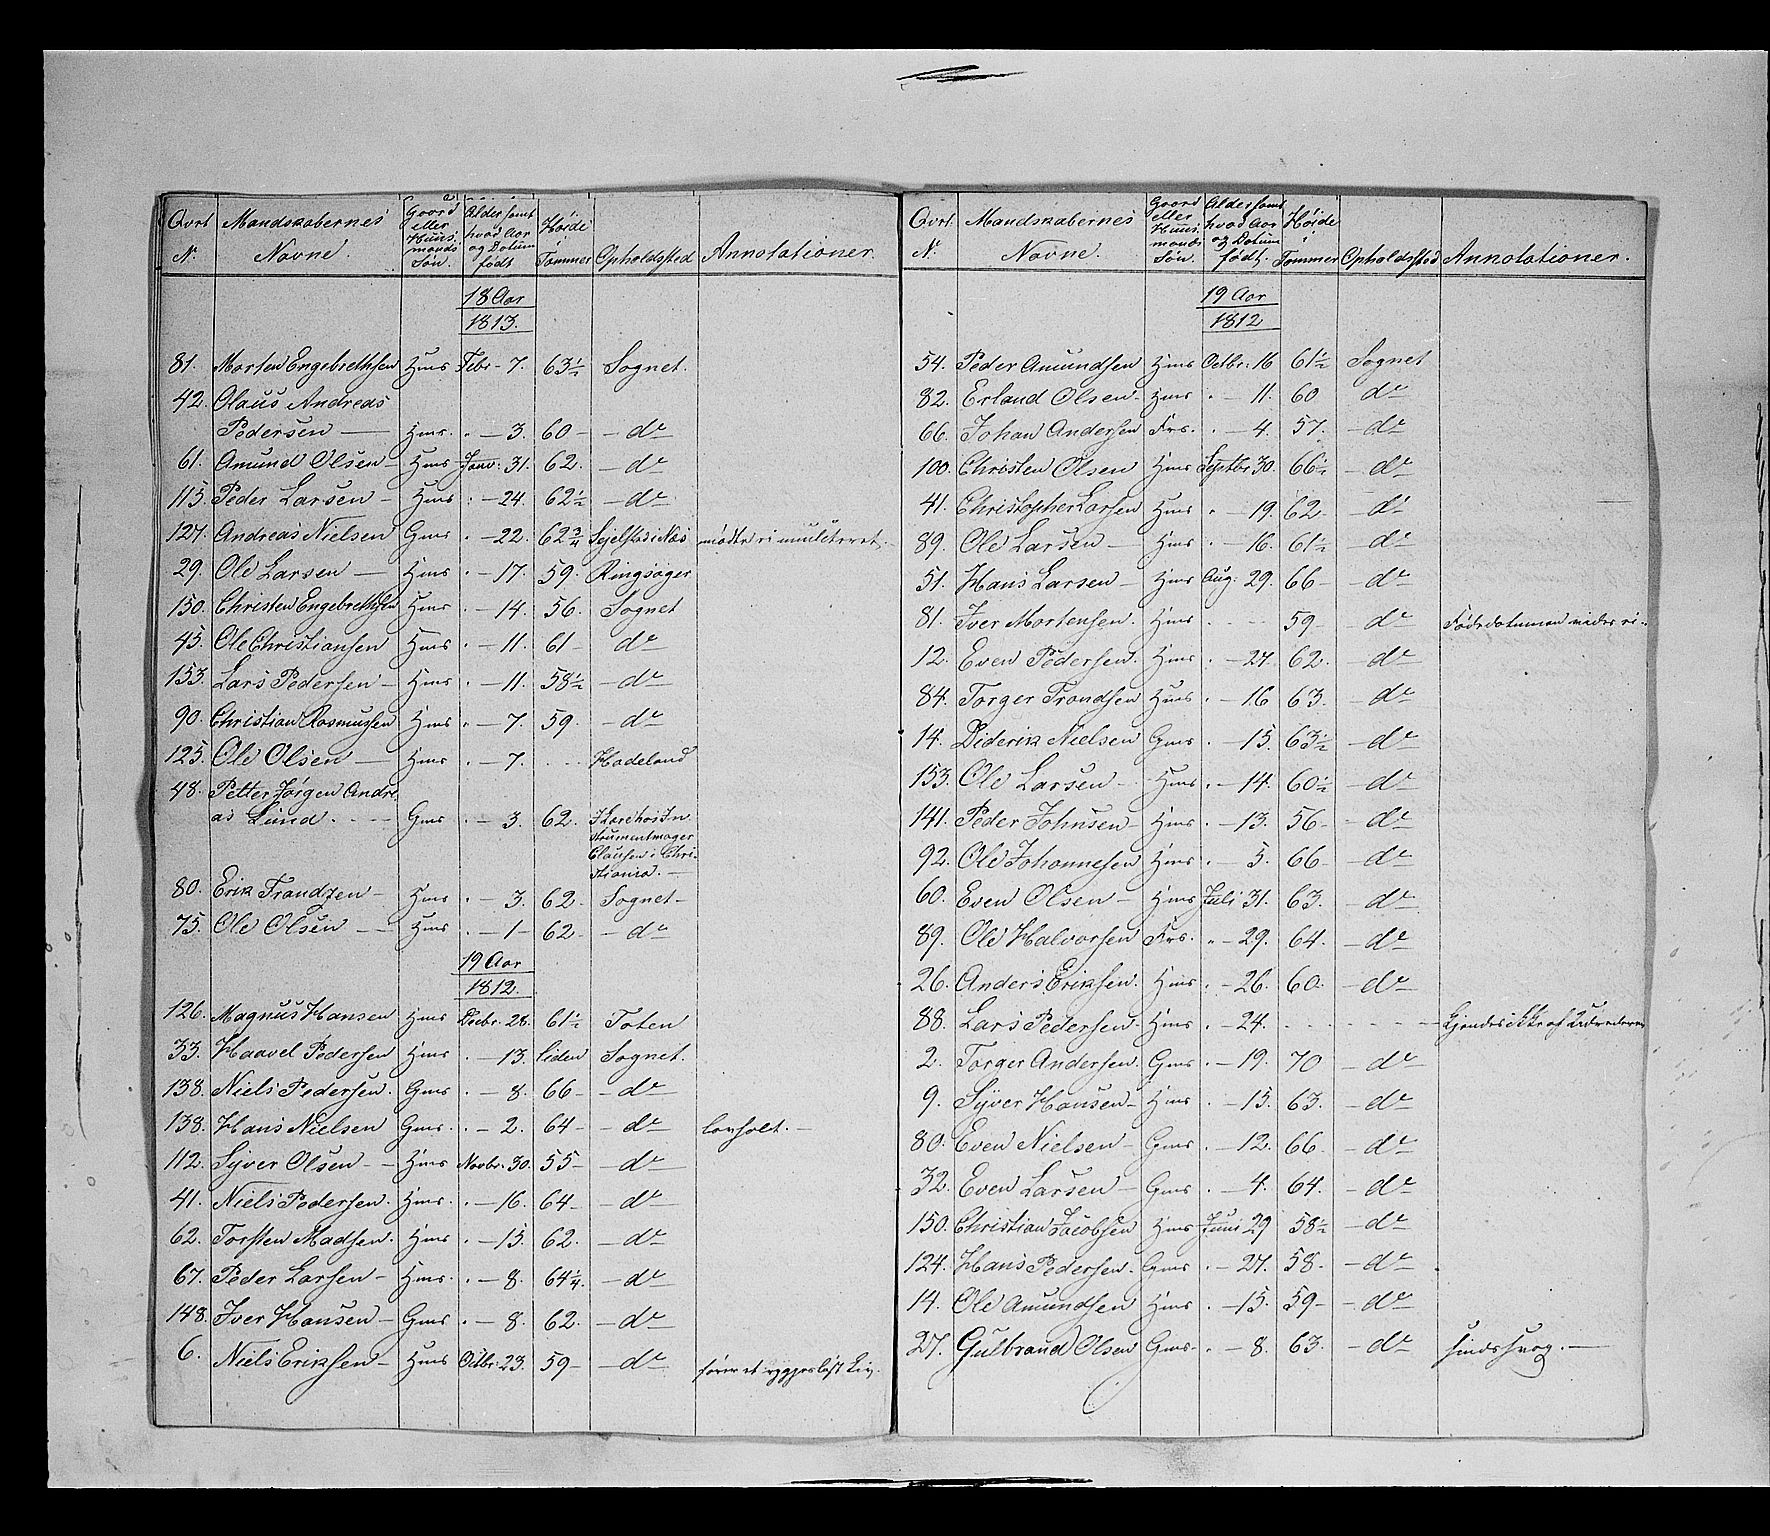 Qvrt Mandskabernes Gaard Alder samt Høide
eller hvad Aar i
Huus- og Datum
mands
Nr. Navne. Søn. født Tommer Opholdsted Annotationer.
18 Aar
1813.
81. Morten Engebrethsen Hms Febr - 7. 63½ Sognet.
42. Olaus Andreas
Pedersen — Hms. " - 3. 60 - - do
61. Amund Olsen - Hms Janv: 31. 62. - do
115. Peder Larsen - Hms " - 24. 62½ - do
127. Andreas Nielsen Gms " - 22. 62¾ Næs mødte ei
29. Ole Larsen — Hms " - 17. 59. Ringsager
150. Christen Engebrethsen Hms " - 14. 56. Sognet
45. Ole Christiansen Hms " - 11. 61 - do
153. Lars Pedersen - Hms " - 11. 58½ - do
90. Christian Rasmussen Hms " - 7. 59. - do
125. Ole Olsen — Hms " - 7. . . . Hadeland
48. Petter Jørgen Andre-
as Lund. - - - Gms " - 3. 62. I Lære hos In-
strumentmager
Clausen i Chri-
stiania. —
80. Erik Trandzen - Hms " - 3. 62. Sognet -
75. Ole Olsen — Hms " - 1 - 62 - - do
19 Aar
1812.
126. Magnus Hansen Hms Decbr 28. 61½ Toten
33. Haavel Pedersen Hms " - 13. liden Sognet.
138. Niels Pedersen. Gms " - 8. 66 - - do
138. Hans Nielsen Gms. " - 2. 64 - - do lavhalt. —
112. Syver Olsen - - Hms Novbr. 30. 55 - - do
41. Niels Pedersen. Hms. " - 16. 64 - - do
62. Torsten Madsen. Hms " - 15. 62. - do
67. Peder Larsen - Hms. " - 8. 64¼. - do
148. Iver Hansen - Gms " - 8. 62. - do
6. Niels Eriksen - Hms Octbr. 23. 59 - - do fører et ryggesløst Liv.
Qvrt. Mandskabernes Gaard Alder samt Høide
eller hvad Aar i
Huus- og Datum
mands
Nr. Navne. Søn. født. Tommer Opholdsted Annotationer.
19 Aar
1812
54. Peder Amundsen Hms Octbr. 16 61½ Sognet
82. Erland Olsen - Hms " - 11. 60 do
66. Johan Andersen Frs. " - 4. 57. - do
100. Christen Olsen Hms Septbr 30. 66½ - do
41. Christopher Larsen Hms " - 19. 62 - do
89. Ole Larsen - Hms " - 16. 61½ - do
51. Hans Larsen - Hms Aug: 29. 66 - - do
81. Iver Mortensen. Hms - - - 59 - - do Fødedatumen vides ei -
12. Even Pedersen. Hms " - 27. 62. - do
84. Torger Trondsen Hms " - 16 63. - do
14. Diderik Nielsen Gms " - 15. 63½ - do
153. Ole Larsen - - Hms " - 14. 60½ - do
141. Peder Johnsen - Hms " - 13. 56 - - do
92. Ole Johannesen Hms " - 5. 66 - do
60. Even Olsen - Hms Juli 31. 63. - do
89. Ole Halvorsen Frs. " - 29. 64. - do
26. Anders Eriksen. Hms " - 26. 60. - do
88. Lars Pedersen. Hms " - 24. - - - - - - - Kjendes ikke af
2. Torger Andersen. Gms " - 19. 70 - do
9. Syver Hansen - Hms " - 15. 63. - do
80. Even Nielsen - Gms " - 12. 66. - do
32. Even Larsen - Gms " - 4. 64. - do
150. Christian Jacobsen Hms Juni 29 58½ - do
124. Hans Pedersen. Gms " - 27. 58. - do
14. Ole Amundsen Hms " - 15. 59 - - do
27. Gulbrand Olsen Gms - " - 8. 63. - do sindssvag. —